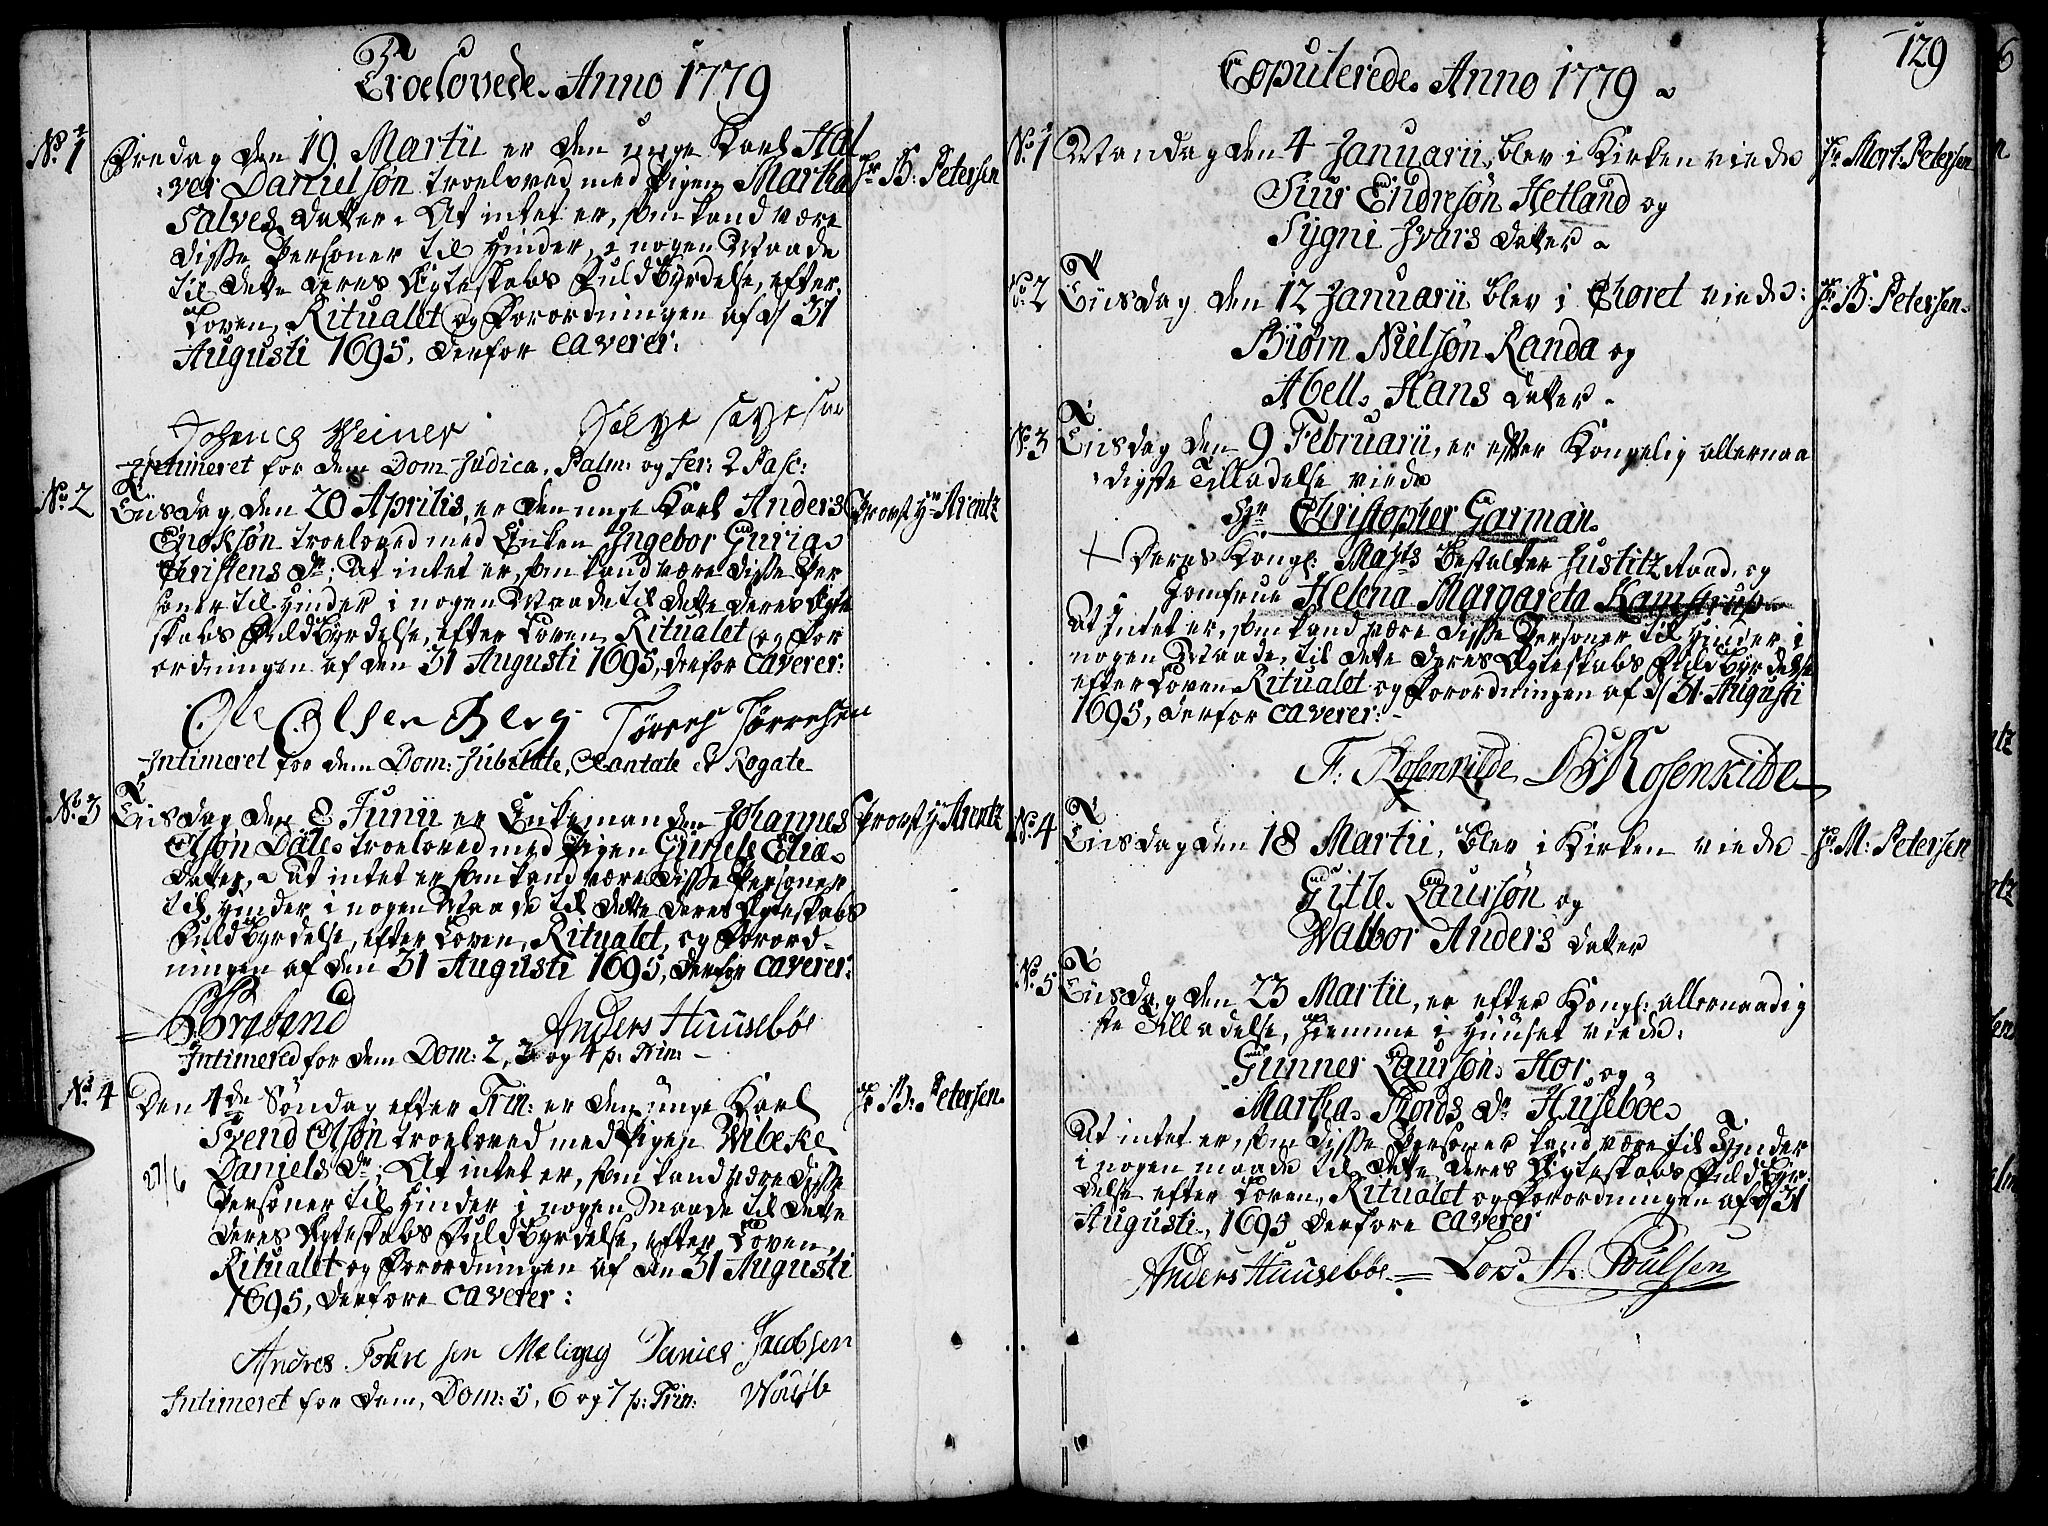 Troelovede Anno 1779
No. 1 Fredag den 19 Martii er den unge Karl Hal
vor Danielsøn troeloved med Pigen Martha Hr. B: Petersen
Salves Datter. At intet er, som kand være
disse Personer til Hinder, i nogen Maade
til dette deres Ægteskabs Fuldbyrdelse, efter
Loven, Ritualet og Forordningen af d/ 31
Augusti 1695, derfor caverer:
Intimeret for dem Dom Judica, Palm: og fer: 2 Pasc:
No. 2 Tiisdag den 20 Aprilis, er den unge Karl Anders Provst Hr. Arentz
Enoksøn troeloved med Enken Ingebor Guria
Christens Dr; At intet er, som kand være disse Per
soner til Hinder i nogen Maade til dette deres Ægte
skabs Fuldbyrdelse, efter Loven, Ritualet og For
ordningen af den 31 Augusti 1695, derfor caverer:
Ole Olsen Berg Tørres Tørresen
Intimeret for dem Dom: Jubilate, Cantate & Rogate
No. 3 Tiisdag den 8 Junii er Enkemanden Johannes Provst Hr. Arentz
Olsøn Dale troeloved med Pigen Gurele Eliæ
Datter, At intet er som kand være disse Personer
til Hinder i nogen Maade til dette deres Ægteskabs
Fuldbyrdelse, efter Loven, Ritualet, og Forord-
ningen af den 31 Augusti 1695, derfor caverer:
Anders Huusebøe
Intimered for dem Dom: 2, 3 og 4 p: Trin:
No. 4 Den 4de Søndag efter Trin: er den unge Karl Hr. B: Petersen
Svend Olsøn troeloved med Pigen Wibeke
27/6 Daniels Dr; At intet er, som kand være disse
Personer til Hinder i nogen Maade til dette
deres Ægteskabs Fuldbyrdelse, efter Loven,
Ritualet og Forordningen af den 31 Augusti
1695, derfore caverer:
Andres Meling Daniel Jacobsen
Intimeret for dem, Dom: 5, 6 og 7 p: Trin:
129
Copulerede Anno 1779
No. 1 Mandag den 4 Januarii, blev i Kirken viede Hr. Mort: Petersen
Siur Endresøn Hetland og
Sygni Ivars datter
No. 2 Tiisdag den 12 Januarii blev i Choret viede: Hr. B: Petersen
Biørn Nielsøn Randa og
Abell Hans datter
No. 3 Tiisdag den 9 Februarii, er efter Kongelig allernaa
digste Tilladelse viede
Hr. Christopher Garman
Deres Kongl: Mayts bestalter Justitz Raad, og
Jomfrue Helena Margareta Kamstrup
At Intet er, som kand være disse Personer til Hinder i
nogen Maade, til dette deres Ægteskabs Fuldbyrdelse
efter Loven Ritualet og Forordningen af d/ 31 Augusti
1695, derfor caverer:
F: Rosenkilde Rosenkilde
No. 4 Tiisdag den 18 Martii, blev i Kirken viede Hr. M: Petersen
Gitle Laursøn og
Walbor Anders datter
No. 5 Tiisdag den 23 Martii, er efter Kongl: allernaadig
ste Tilladelse, hiemme i Huuset viede:
Gunner Laursøn Hor, og
Martha Thords Dr Husebøe
At intet er, som disse Personer kand være til Hinder
i nogen maade til dette deres Ægteskabs Fuldbyr
delse efter Loven, Ritualet og Forordningen af d/ 31
Augusti, 1695 derfore caverer
Anders Huusebøe Poulsen